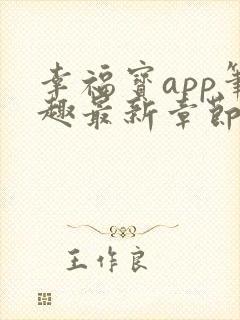 幸福寳app筆
趣最新章節
王作良